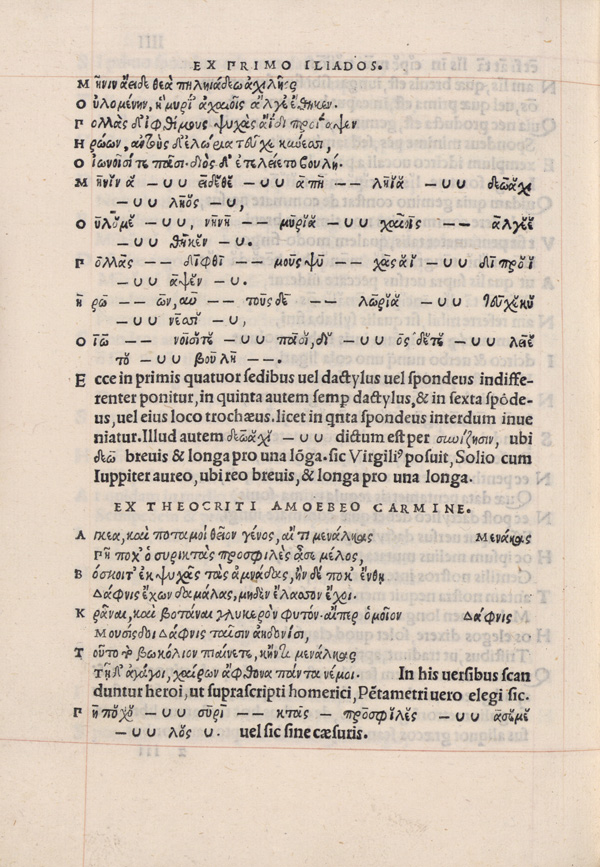 EX PRIMO ILIADOS.
Μ ῆνιν ἄειδε θεὰ πηληιάδεω ἀχιλῆος
Ο ὐλομένην, ἣ μυρί ἀχαιοῖς ἄλγε ἔθηκεν.
Π ολλὰς δ' ἰφθίμους ψυχὰς ἄϊδι προΐαψεν
Η ρώων, αὐτοὺς δ' ἑλώρια τεῦχε κύνεσσι,
Ο ἰωνοῖσί τε πᾶσι. διὸς δ' ἐτελείετο βουλή.
Μ ῆνῐν ᾰ – ∪∪ εῐδεθε – ∪∪ ᾱπη – – ληϊᾰ – ∪∪ δεωᾰχι
– ∪∪ ληος – ∪,
Ο ὐλομε – ∪∪, νηνη – – μυριᾰ – ∪∪ χαιοις – – ᾱλγεε
– ∪∪ θηκεν – ∪.
Π ολλας – – διφθι – – μους ψυ – – χας αϊ – ∪∪ δι προϊ
– ∪∪ ᾱψεν – ∪.
Η ρω – – ων, αυ – – τους δε – – λωριᾰ – ∪∪ τευχε κυ
– ∪∪ νεσσι – ∪,
Ο ιω – – νοισιτε – ∪∪ πασι, δι – ∪∪ ος δετε – ∪∪ λειε
το – ∪∪ βουλη – –.
E cce in primis quatuor sedibus uel dactylus uel spondeus indiffe-
renter ponitur, in quinta autem semp dactylus, & in sexta spōde-
us, uel eius loco trochæus. licet in qnta spondeus interdum inue
niatur. Illud autem δεωᾰχι – ∪∪ dictum est per συνίζησιν, ubi
δεω breuis & longa pro una lōga. sic Virgiliꝰ posuit, Solio cum
Iuppiter aureo, ubi reo breuis, & longa pro una longa.
EX THEOCRITI AMOEBEO CARMINE.
Α γκεα, καὶ ποταμοὶ θεῖον γένος, αἴ τι μενάλκας Μενάλκας
Πῆ ποχ' ὁ συρικτὰς προσφιλὲς ᾆσε μέλος,
Β όσκοιτ' ἐκ ψυχᾶς τὰς ἀμνάδας, ἢν δέ ποκ' ἔνθῃ
Δάφνις ἔχων δαμάλας, μηδὲν ἔλασσον ἔχοι.
Κ ρᾶναι, καὶ βοτάναι γλυκερὸν φυτόν. αἴπερ ὁμοῖον Δάφνις
Μουσίσδοι Δάφνις ταῖσιν ἀηδονίσι,
Τ οῦτο τὸ βωκόλιον πιαίνετε, κἤν τι μενάλκας
Τῇ δ' ἀγάγοι, χαίρων ἄφθονα πάντα νέμοι. In his uersibus scan
duntur heroi, ut suprascripti homerici, Pētametri uero elegi sic.
Π η ποχο – ∪∪ συρι – – κτας – προσφιλες – ∪∪ ᾱσεμε
– ∪∪ λος ∪. uel sic sine cæsuris.